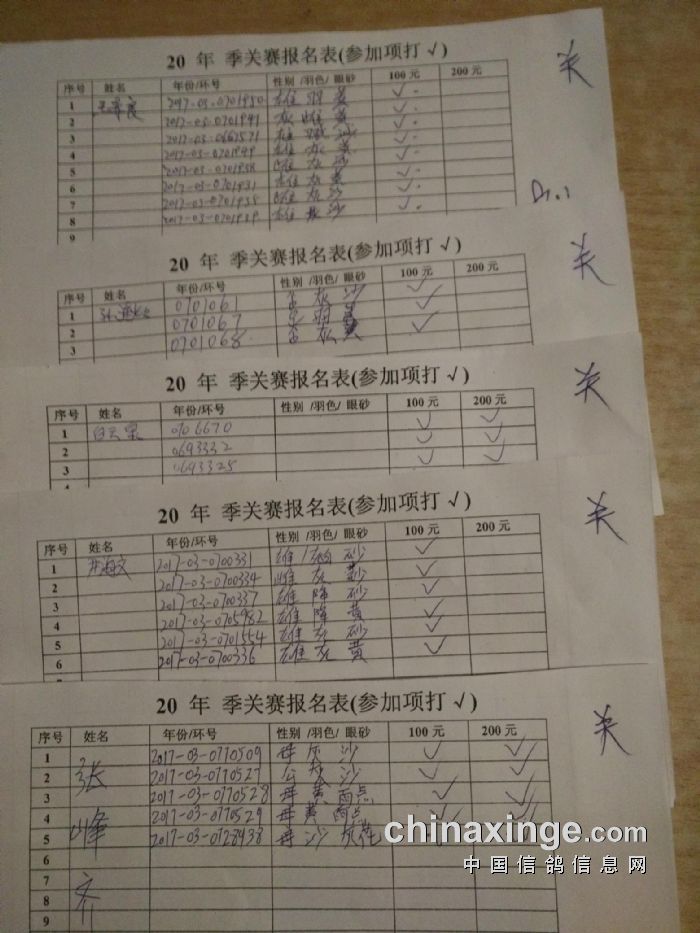 20 年 季关赛报名表(参加项打 √ )
关
序号 姓名 年份/环号 性别 /羽色/ 眼砂 100 元 200 元
1 2017-03-0701950 雄 黄 ✓
2 2017-03-0701941 灰 雌 黄 ✓
3 ✓
4 2017-03-0701949 雄 灰 黄 ✓
5 2017-03-0701938 雌 灰 沙 ✓
6 2017-03-0701931 雄 灰 黄 ✓
7 2017-03-0701935 雌 灰 沙 ✓
8 2017-03-0701939 雄 沙 ✓
9
20 年 季关赛报名表(参加项打 √ )
关
序号 姓名 年份/环号 性别 /羽色/ 眼砂 100 元 200 元
1 0701061 灰 沙 ✓
2 0701067 ✓
3 0701068 灰 黄 ✓
20 年 季关赛报名表(参加项打 √ )
关
序号 姓名 年份/环号 性别 /羽色/ 眼砂 100 元 200 元
1 白云泉 0706670 ✓ ✓
2 0693332 ✓ ✓
3 0693325 ✓ ✓
20 年 季关赛报名表(参加项打 √ )
关
序号 姓名 年份/环号 性别 /羽色/ 眼砂 100 元 200 元
1 海文 2017-03-0700331 雄 砂 ✓
2 2017-03-0700334 雌 灰 ✓
3 2017-03-0700337 雄 降 砂 ✓
4 2017-03-0705982 雄 降 黄 ✓
5 2017-03-0701554 雄 灰 砂 ✓
6 2017-03-0700336 雄 灰 黄 ✓
20 年 季关赛报名表(参加项打 √ )
关
序号 姓名 年份/环号 性别 /羽色/ 眼砂 100 元 200 元
1 2017-03-0770509 母 灰 沙 ✓ ✓
2 张 2017-03-0770527 公 灰 沙 ✓ ✓
3 2017-03-0770528 母 黄 雨点 ✓ ✓
4 峰 2017-03-0770529 母 黄 雨点 ✓ ✓
5 2017-03-0728438 母 沙 灰 ✓ ✓
6
7
8 齐
9
chinaxinge.com
中国信鸽信息网